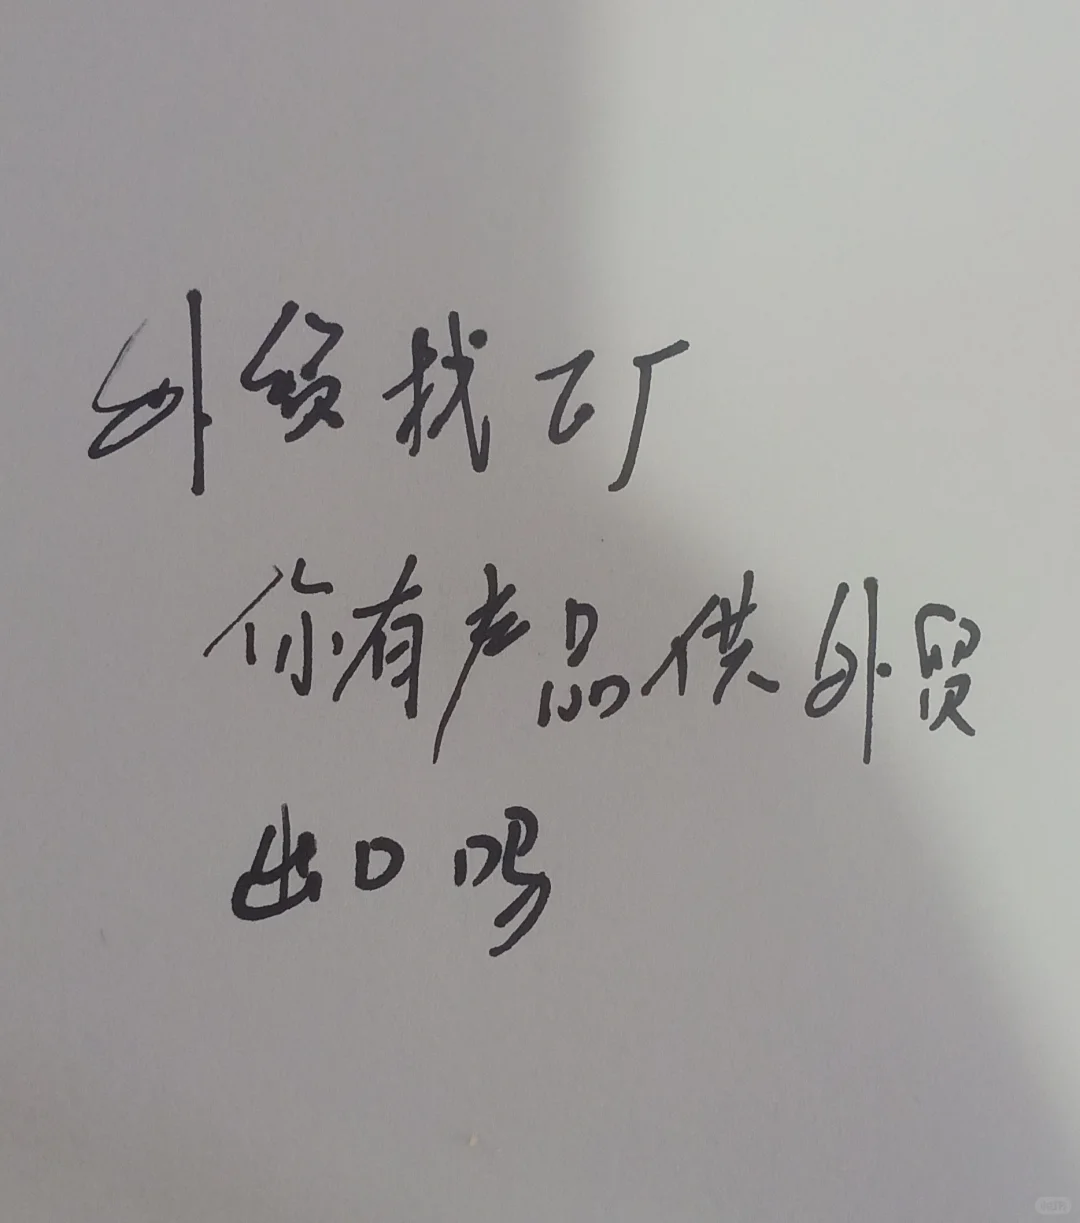 外贸找工厂
你有产品供外贸
出口吗